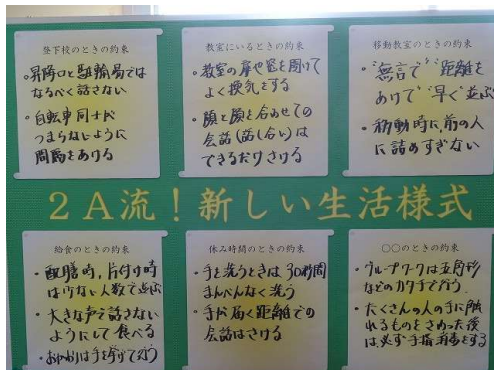 登下校のときの約束
・昇降口と駐輪場では
なるべく話さない
・自転車同士が
つまらないように
間隔をあける
教室にいるときの約束
・教室の扉や窓を開けて
よく換気をする
・顔と顔を合わせての
会話(話し合い)は
できるだけさける
移動教室のときの約束
・"無言で" "距離を
あけて" "早く" 並ぶ
・移動時に、前の人
に詰めすぎない
2A流!新しい生活様式
給食のときの約束
・配膳時、片付け時
は少ない人数で並ぶ
・大きな声で話さない
ようにして食べる
・おかわりは手を挙げて行う
休み時間のときの約束
・手を洗うときは30秒間
まんべんなく洗う
・手が届く距離での
会話はさける
○○のときの約束
・グループワークは五角形
などのカタチで行う
・たくさんの人の手に触
れるものをさわった後
は必ず手指消毒をする